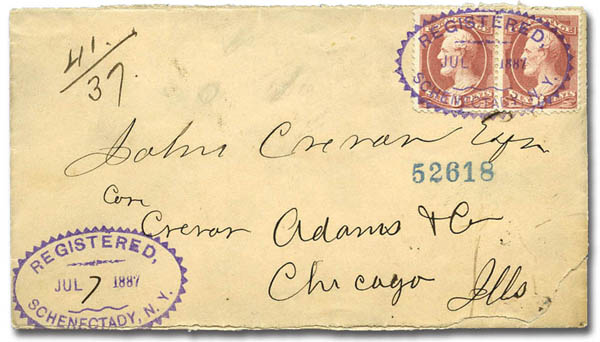 41.
37.
REGISTERED,
JUL 1887
SCHENECTADY, N.Y.
John Crerar Esqr
52618
Care
Crerar Adams & Co
Chicago Ills
REGISTERED,
JUL 7 1887
SCHENECTADY, N.Y.